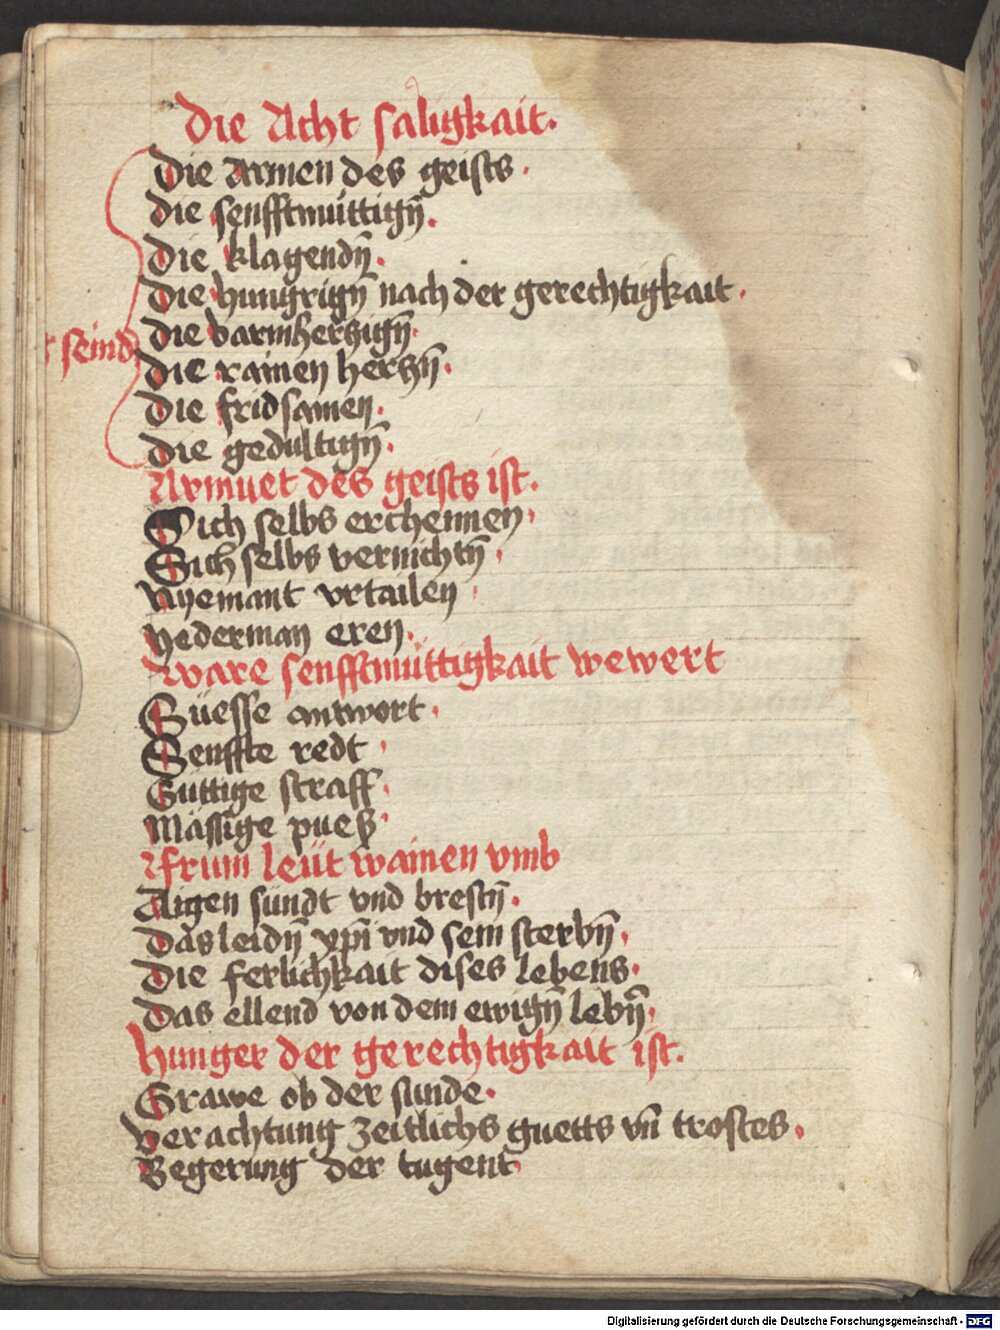 Die Acht säligkait.
Die Armen des geists.
Die senfftmüttigñ.
Die klagendñ.
Die hungrigñ nach der gerechtigkait.
seind
Die barmherczigñ.
Die rainen herczñ.
Die fridsamen.
Die gedultigñ.
Armuet des geists ist.
Sich selbs erchennen.
Sich selbs vernichtñ.
Nyemant vrtailen
yederman eren.
Ware senfftmüttigkait wewert
Süesse antwort.
Senffte redt
Güttige straff.
Mässige puesz.
Frum leüt wainen vmb
Aigen sündt vnd brestñ.
Das leidñ xpi̅ vnd sein sterbñ.
Die ferlichkait dises lebens.
Das ellend von dem ewigñ lebñ.
Hunger der gerechtigkait ist.
Grawe ob der sunde.
Verachtung zeitlichs guetts vñ trostes.
Begerung der tugent.
Digitalisierung gefördert durch die Deutsche Forschungsgemeinschaft - DFG